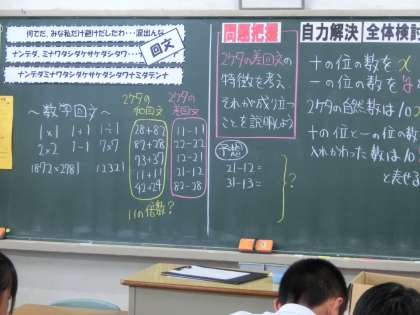 何でだ、みな私だけ避けだしたわ・・・涙出んな
ナンデダ、ミナワタシダケサケダシタワ・・・
回文
ナンデダミナワタシダケサケダシタワナミダデンナ
〜数字回文〜
1×1 1+1 1÷1
2×2 1-1 7×7
1892×2981 12321
2ケタの
和回文
28+82
82+28
93+39
11+11
42+24
11の倍数?
2ケタの
差回文
11-11
22-22
12-21
21-12
82-28
問題把握
2ケタの差回文の
特徴を考え、
それが成り立つ
ことを説明しよう
予想
21-12=
31-13=
?
自力解決
全体検討
十の位の数をx
一の位の数をy
2ケタの自然数は10x
十の位と一の位の数
入れかわった数は10
と表せる